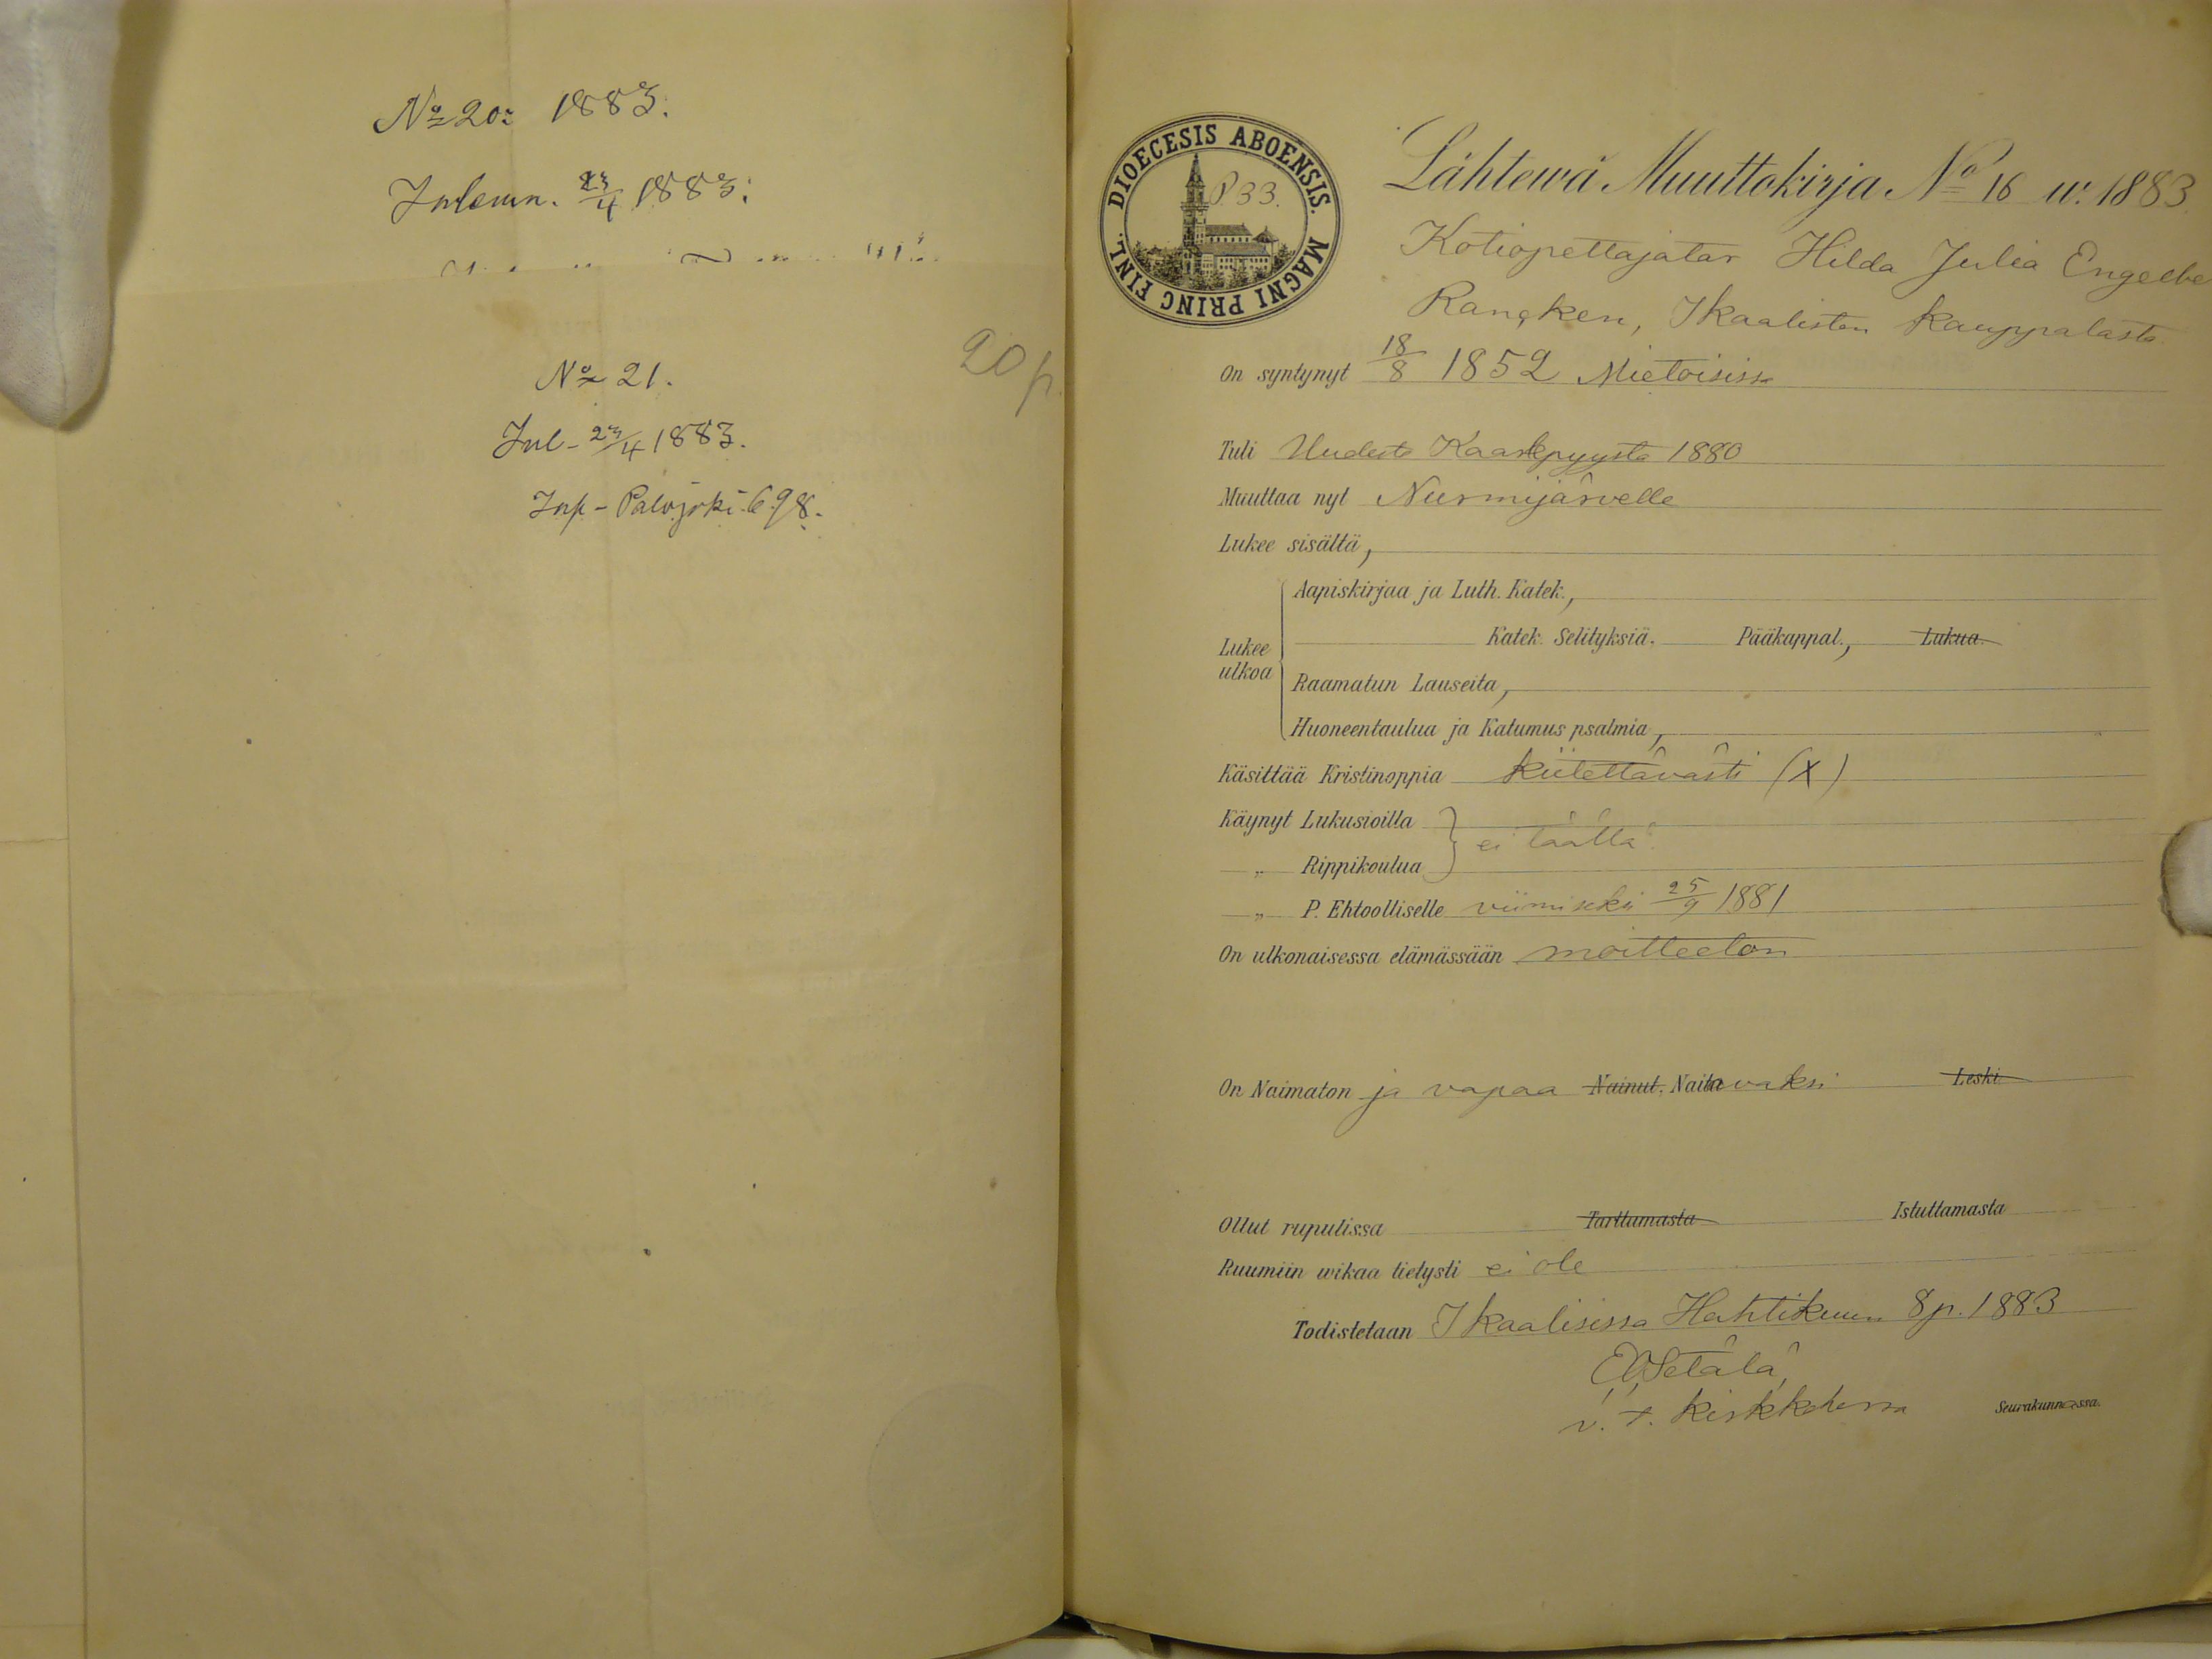 No 20: 1883.
Inlemn. 23/4 1883:
20 p.
No 21.
Inl- 23/4 1883.
Inf- Palojoki 698.
DIOECESIS ABOENSIS. MAGNI PRINC FINL.
P. 33.
Lähtewä Muuttokirja No 16 w. 1883
Kotiopettajatar Hilda Julia Engelbe
Rancken, Ikaalisten kauppalasta
On syntynyt 18/8 1852 Mietoisissa
Tuli Uudesta Kaarlepyystä 1880
Muuttaa nyt Nurmijärvelle
Lukee sisältä,
Lukee ulkoa
Aapiskirjaa ja Luth. Katek.,
Katek. Selityksiä. Pääkappal., Lukua.
Raamatun Lauseita,
Huoneentaulua ja Katumus psalmia,
Käsittää Kristinoppia kiitettävästi (X)
Käynyt Lukusioilla
ei täällä
„ Rippikoulua
„ P. Ehtoolliselle viimiseksi 25/9 1881
On ulkonaisessa elämässään moitteeton
On Naimaton ja vapaa Nainut. Naitavaksi Leski.
Ollut rupulissa Tarttumasta Istuttamasta
Ruumiin wikaa tietysti ei ole
Todistetaan Ikaalisissa Huhtikuun 8 p. 1883
Setälä
v. t. kirkkoherra Seurakunnassa.